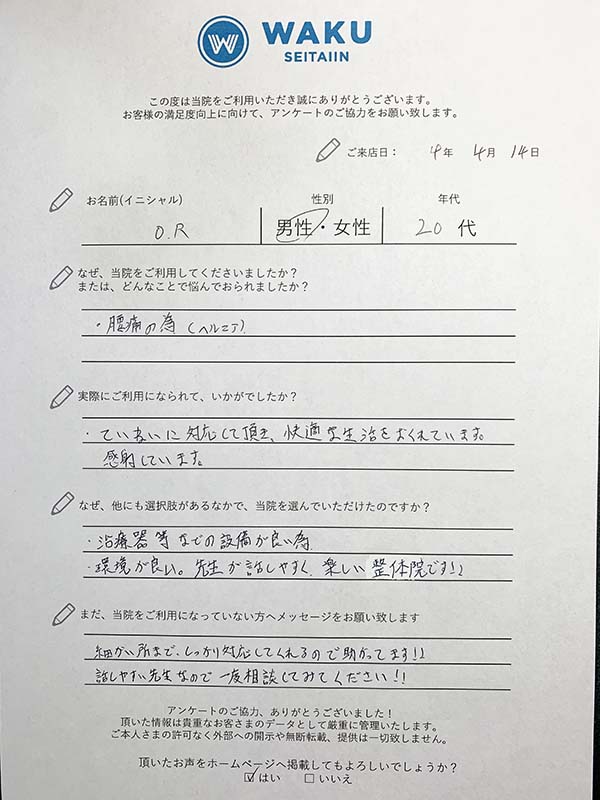 WAKU
SEITAIIN
この度は当院をご利用いただき誠にありがとうございます。
お客様の満足度向上に向けて、アンケートのご協力をお願い致します。
ご来店日： 4年 4月 14日
お名前(イニシャル) 性別 年代
O.R 男性・女性 20代
なぜ、当院をご利用してくださいましたか？
または、どんなことで悩んでおられましたか？
・腰痛の為（ヘルニア）
実際にご利用になられて、いかがでしたか？
・ていねいに対応して頂き、快適な生活をおくれています。
感謝しています。
なぜ、他にも選択肢があるなかで、当院を選んでいただけたのですか？
・治療器等などの設備が良い為
・環境が良い。先生が話しやすく、楽しい整体院です!!
まだ、当院をご利用になっていない方へメッセージをお願い致します
細かい所まで、しっかり対応してくれるので助かってます!!
話しやすい先生なので一度相談してみてください!!
アンケートのご協力、ありがとうございました！
頂いた情報は貴重なお客さまのデータとして厳重に管理いたします。
ご本人さまの許可なく外部への開示や無断転載、提供は一切致しません。
頂いたお声をホームページへ掲載してもよろしいでしょうか？
☑はい □いいえ